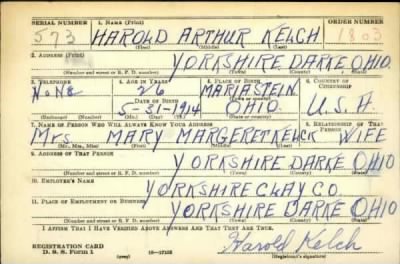 SERIAL NUMBER 1. NAME (Print) ORDER NUMBER
573 HAROLD ARTHUR KELCH 1803
(First) (Middle) (Last)
2. ADDRESS (Print)
YORKSHIRE DARKE, OHIO.
(Number and street or R. F. D. number) (Town) (County) (State)
3. TELEPHONE 4. AGE IN YEARS 5. PLACE OF BIRTH 6. COUNTRY OF CITIZENSHIP
NONE 26 MARIASTEIN
DATE OF BIRTH
5-31-1914 OHIO. U.S.A.
(Mo.) (Day) (Yr.) (State or country)
7. NAME OF PERSON WHO WILL ALWAYS KNOW YOUR ADDRESS 8. RELATIONSHIP OF THAT PERSON
Mrs MARY MARGERET KELCK WIFE
(Mr., Mrs., Miss) (First) (Middle) (Last)
9. ADDRESS OF THAT PERSON
YORKSHIRE DARKE OHIO
(Number and street or R. F. D. number) (Town) (County) (State)
10. EMPLOYER'S NAME
YORKSHIRE CLAY CO.
11. PLACE OF EMPLOYMENT OR BUSINESS
YORKSHIRE DARKE OHIO
(Number and street or R. F. D. number) (Town) (County) (State)
I AFFIRM THAT I HAVE VERIFIED ABOVE ANSWERS AND THAT THEY ARE TRUE.
REGISTRATION CARD
D. S. S. Form 1 (over) Harold Kelch
(Registrant's signature)